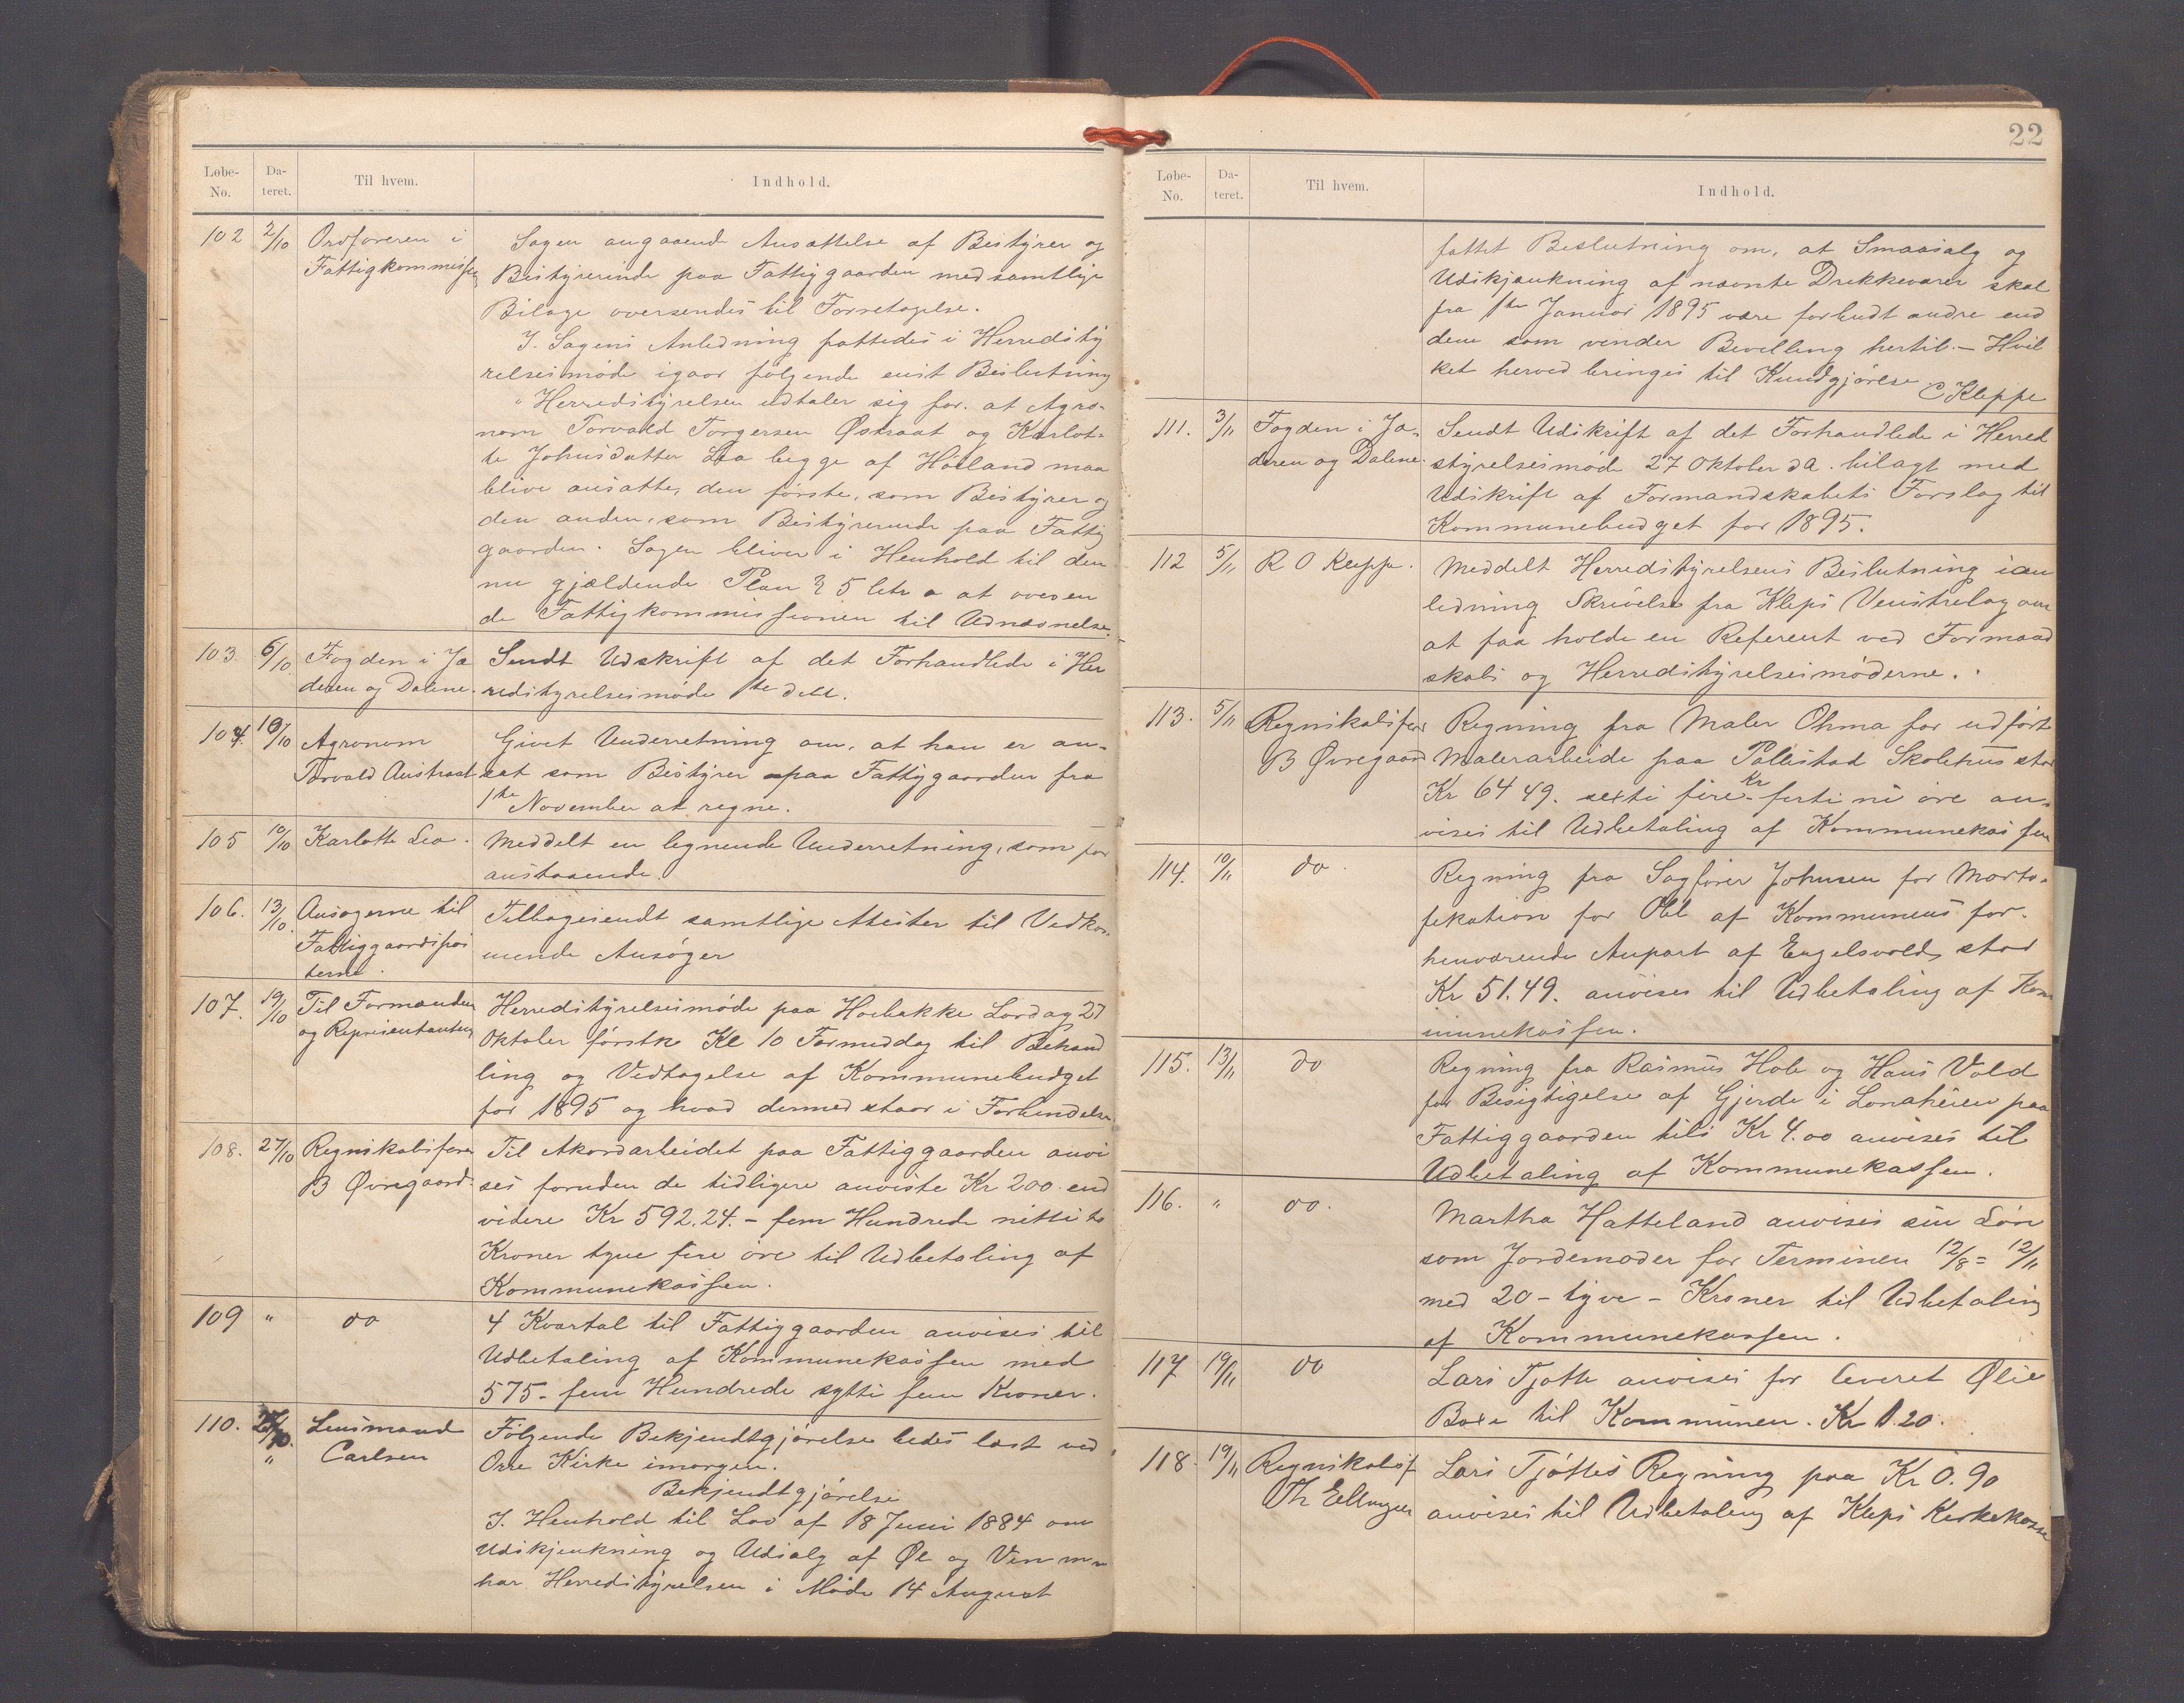 Løbe-No. Dateret. Til hvem. Indhold.
102 2/10 Ordføreren i Fattigkommissen
Sagen angaaende Ansættelse af Bestyrer og
Bestyrerinde paa Fattiggaarden med samtlige
Bilage oversendes til Foretagelse.
I Sagens Anledning fattedes i Herredsty
relsesmøde igaar følgende enst Beslutning
"Herredstyrelsen udtaler sig for at Agro-
nom Torvald Torgersen Østraat og Karlot-
te Johnsdatter Lea begge af Høiland maa
blive ansatte, den første, som Bestyrer og
den anden, som Bestyrerinde paa Fattig
gaarden. Sagen bliver i Henhold til den
nu gjældende Plan § 5 litr a at oversen
de Fattigkommissionen til Udnævnelse.
103 6/10 Fogden i Jæ
deren og Dalene.
Sendt Udskrift af det Forhandlede i Her
redstyrelsesmøde 1te ds.
104. 10/10 Agronom
Torvald Austraat
Givet Underretning om, at han er an-
sat som Bestyrer paa Fattiggaarden fra
1ste November at regne.
105 10/10 Karlotte Lea.
Meddelt en lignende Underretning, som for
anstaaende.
106. 13/10 Ansøgerne til
Fattiggaardspos
terne.
Tilbagesendt samtlige Atester til Vedkom
mende Ansøger
107. 19/10 Til Formanden
og Repræsentanten
Herredstyrelsesmøde paa Hoebakke Lørdag 27
Oktober førstk Kl 10 Formiddag til Behand
ling og Vedtagelse af Kommunebudget
for 1895 og hvad dermed staar i Forbindelse
108. 27/10 Regnskabsfører
B Øvregaard.
Til Akordarbeidet paa Fattiggaarden anvi
ses foruden de tidligere anviste Kr 200 end
videre Kr 592.24. - fem Hundrede nitti to
Kroner tyve fire øre til Udbetaling af
Kommunekassen.
109 " do
4 Kvartal til Fattiggaarden anvises til
Udbetaling af Kommunekassen med
575 - fem Hundrede sytti fem Kroner.
110. " Lensmand
Carlsen
Følgende Bekjendtgjørelse bedes læst ved
Orre Kirke imorgen.
Bekjendtgjørelse
I. Henhold til Lov af 18 Juni 1884 om
Udskjenkning og Udsalg af Øl og Vin m m
har Herredstyrelsen i Møde 14 August
22
Løbe-No. Dateret. Til hvem. Indhold.
fattet Beslutning om, at Smaasalg og
Udskjænkning af nævnte Drikkevarer skal
fra 1ste Januar 1895 være forbudt andre end
dem som vinder Bevilling hertil. - Hvil
ket herved bringes til Kundgjørelse C Kleppe
111. 3/11 Fogden i Jæ-
deren og Dalene.
Sendt Udskrift af det Forhandlede i Herred
styrelsesmøde 27 Oktober d A. bilagt med
Udskrift af Formandskabets Forslag til
Kommunebudget for 1895.
112 5/11 R O Kleppe.
Meddelt Herredstyrelsens Beslutning i an
ledning Skrivelse fra Kleps Venstrelag om
at faa holde en Referent ved Formand
skabs og Herredstyrelsesmøderne.
113. 5/11 Regnskabsfører
B Øvregaard
Regning fra Maler Ohma for udført
Malerarbeide paa Pollestad Skolehus stor
Kr 64 49. sexti fire Kr forti ni øre an-
vises til Udbetaling af Kommunekassen
114. 10/11 do.
Regning fra Sagfører Johnsen for Morto-
fikation for Obl af Kommunens for-
henværende Anpart af Engelsvold, stor
Kr 51.49. anvises til Udbetaling af Kom
munekassen.
115. 13/11 do
Regning fra Rasmus Hole og Hans Vold
for Besigtigelse af Gjerde i Lonaheien paa
Fattiggaarden tils Kr 4.00 anvises til
Udbetaling af Kommunekassen.
116. " do.
Martha Hatteland anvises sin Løn
som Jordemoder for Terminen 12/8 = 12/11
med 20 - tyve - Kroner til Udbetaling
af Kommunekassen.
117 19/11 do
Lars Tjøtte anvises for leveret Ølie
Boxe til Kommunen. Kr 1.20.
118. 19/11 Regnskabsf
Th Ellingsen
Lars Tjøttes Regning paa Kr 0.90
anvises til Udbetaling af Kleps Kirkekasse